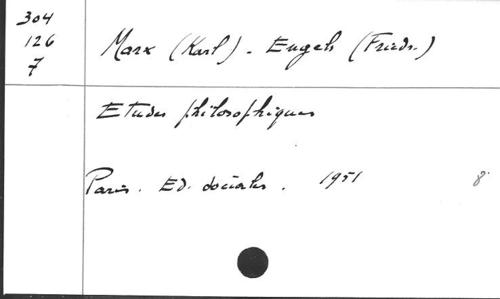 304
126
7
Marx (Karl). Engels (Friedr.)
Etudes philosophiques
Paris. Ed. sociales. 1951 8°